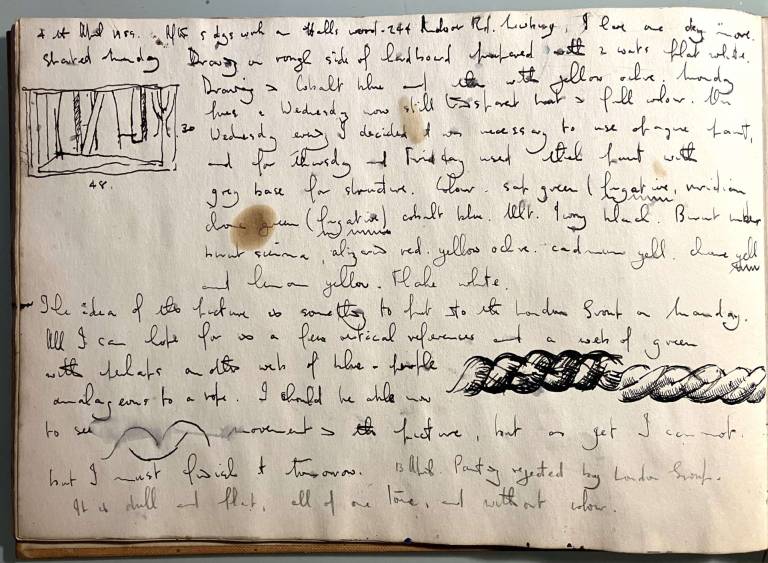 5 days work on Halls wood - 244 Andover Rd. Newbury, I have one day more.
started Monday Drawing on rough side of hardboard prepared with 2 coats flat white.
Drawing in Cobalt blue and then with yellow ochre. Monday
Tues & Wednesday now still transparent but in full colour. On
Wednesday evng I decided it was necessary to use opaque paint,
and for Thursday and Friday used thick paint with
30
48.
grey base for structure. Colour. sap green (fugative, viridian
chrome green (fugative) cobalt blue. Ult. Ivory black. Burnt umber
burnt sienna, alizarin red. yellow ochre. cadmium yell. chrome yell
and lemon yellow. Flake white.
The idea of this picture is something to put into the London Group on Monday.
All I can hope for is a few vertical references and a web of green
with perhaps another web of blue-purple
analageous to a rope. I should be able now
to see movement in the picture, but as yet I cannot.
but I must finish it tomorrow. Painting rejected by London Group.
It is dull and flat, all of one tone, and without colour.